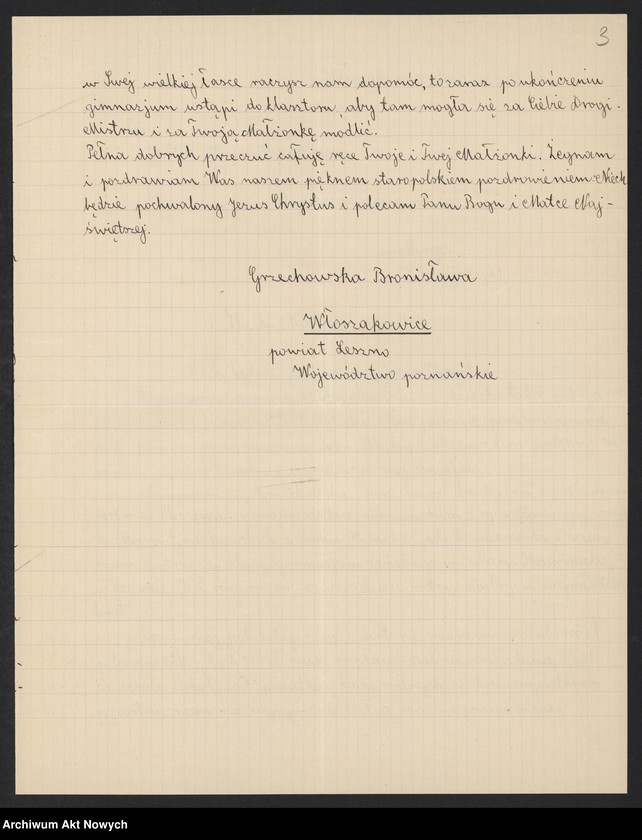 3
w Swej wielkiej łasce raczysz nam dopomóc, to zaraz po ukończeniu
gimnazjum ustąpi do klasztoru, aby tam mogła się za Ciebie Drogi
Mistrzu i za Twoją Małżonkę modlić.
Pełna dobrych przeczuć całuję ręce Twoje i Twej Małżonki. Żegnam
i pozdrawiam Was naszem pięknem staropolskiem pozdrowieniem Niech
będzie pochwalony Jezus Chrystus i polecam Panu Bogu i Matce Naj-
świętszej.
Grzechowska Bronisława
Włoszakowice
powiat Leszno
Województwo poznańskie
Archiwum Akt Nowych